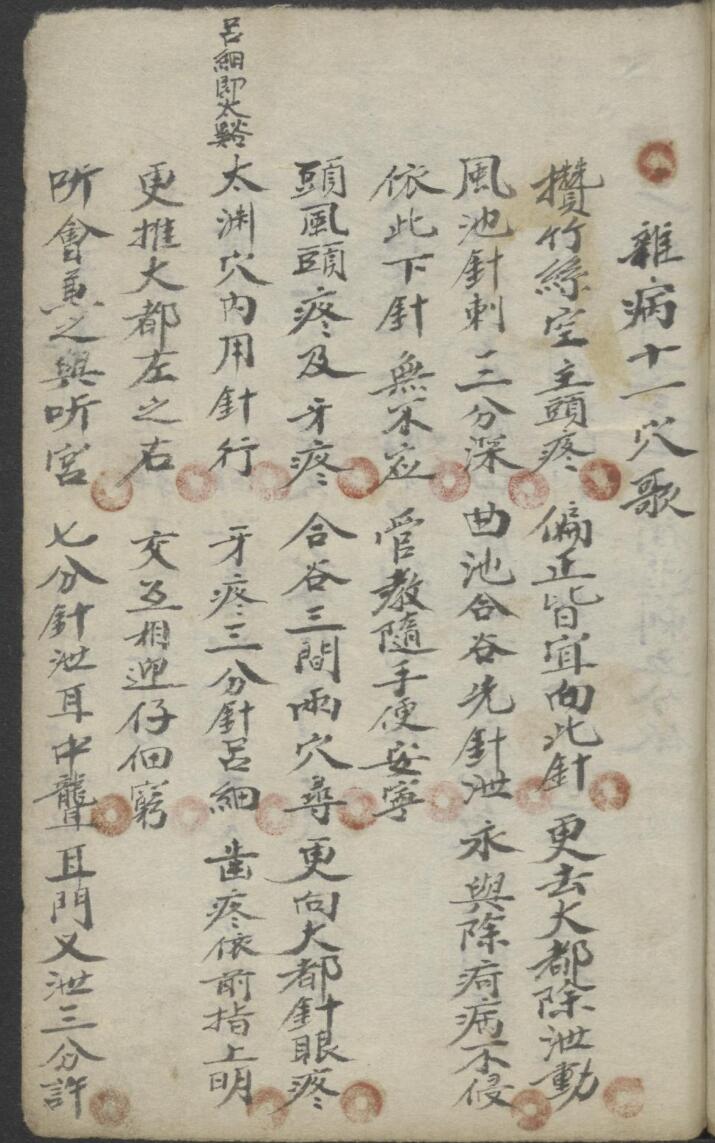 雜病十一穴歌
攢竹絲空主頭疼 偏正皆宜向此針 更去大都除泄動
風池針刺三分深 曲池合谷先針泄 永與除疴病不侵
依此下針無不应 管教隨手便安寧
頭風頭疼及牙疼 合谷三間兩穴尋 更向大都針眼疼
太渊穴内用針行 牙疼三分針呂細 齒疼依前指上明
呂細即太谿
更推大都左之右 交互相迎仔细窮
听會兼之與听宮 七分針泄耳中聾 耳門又泄三分許